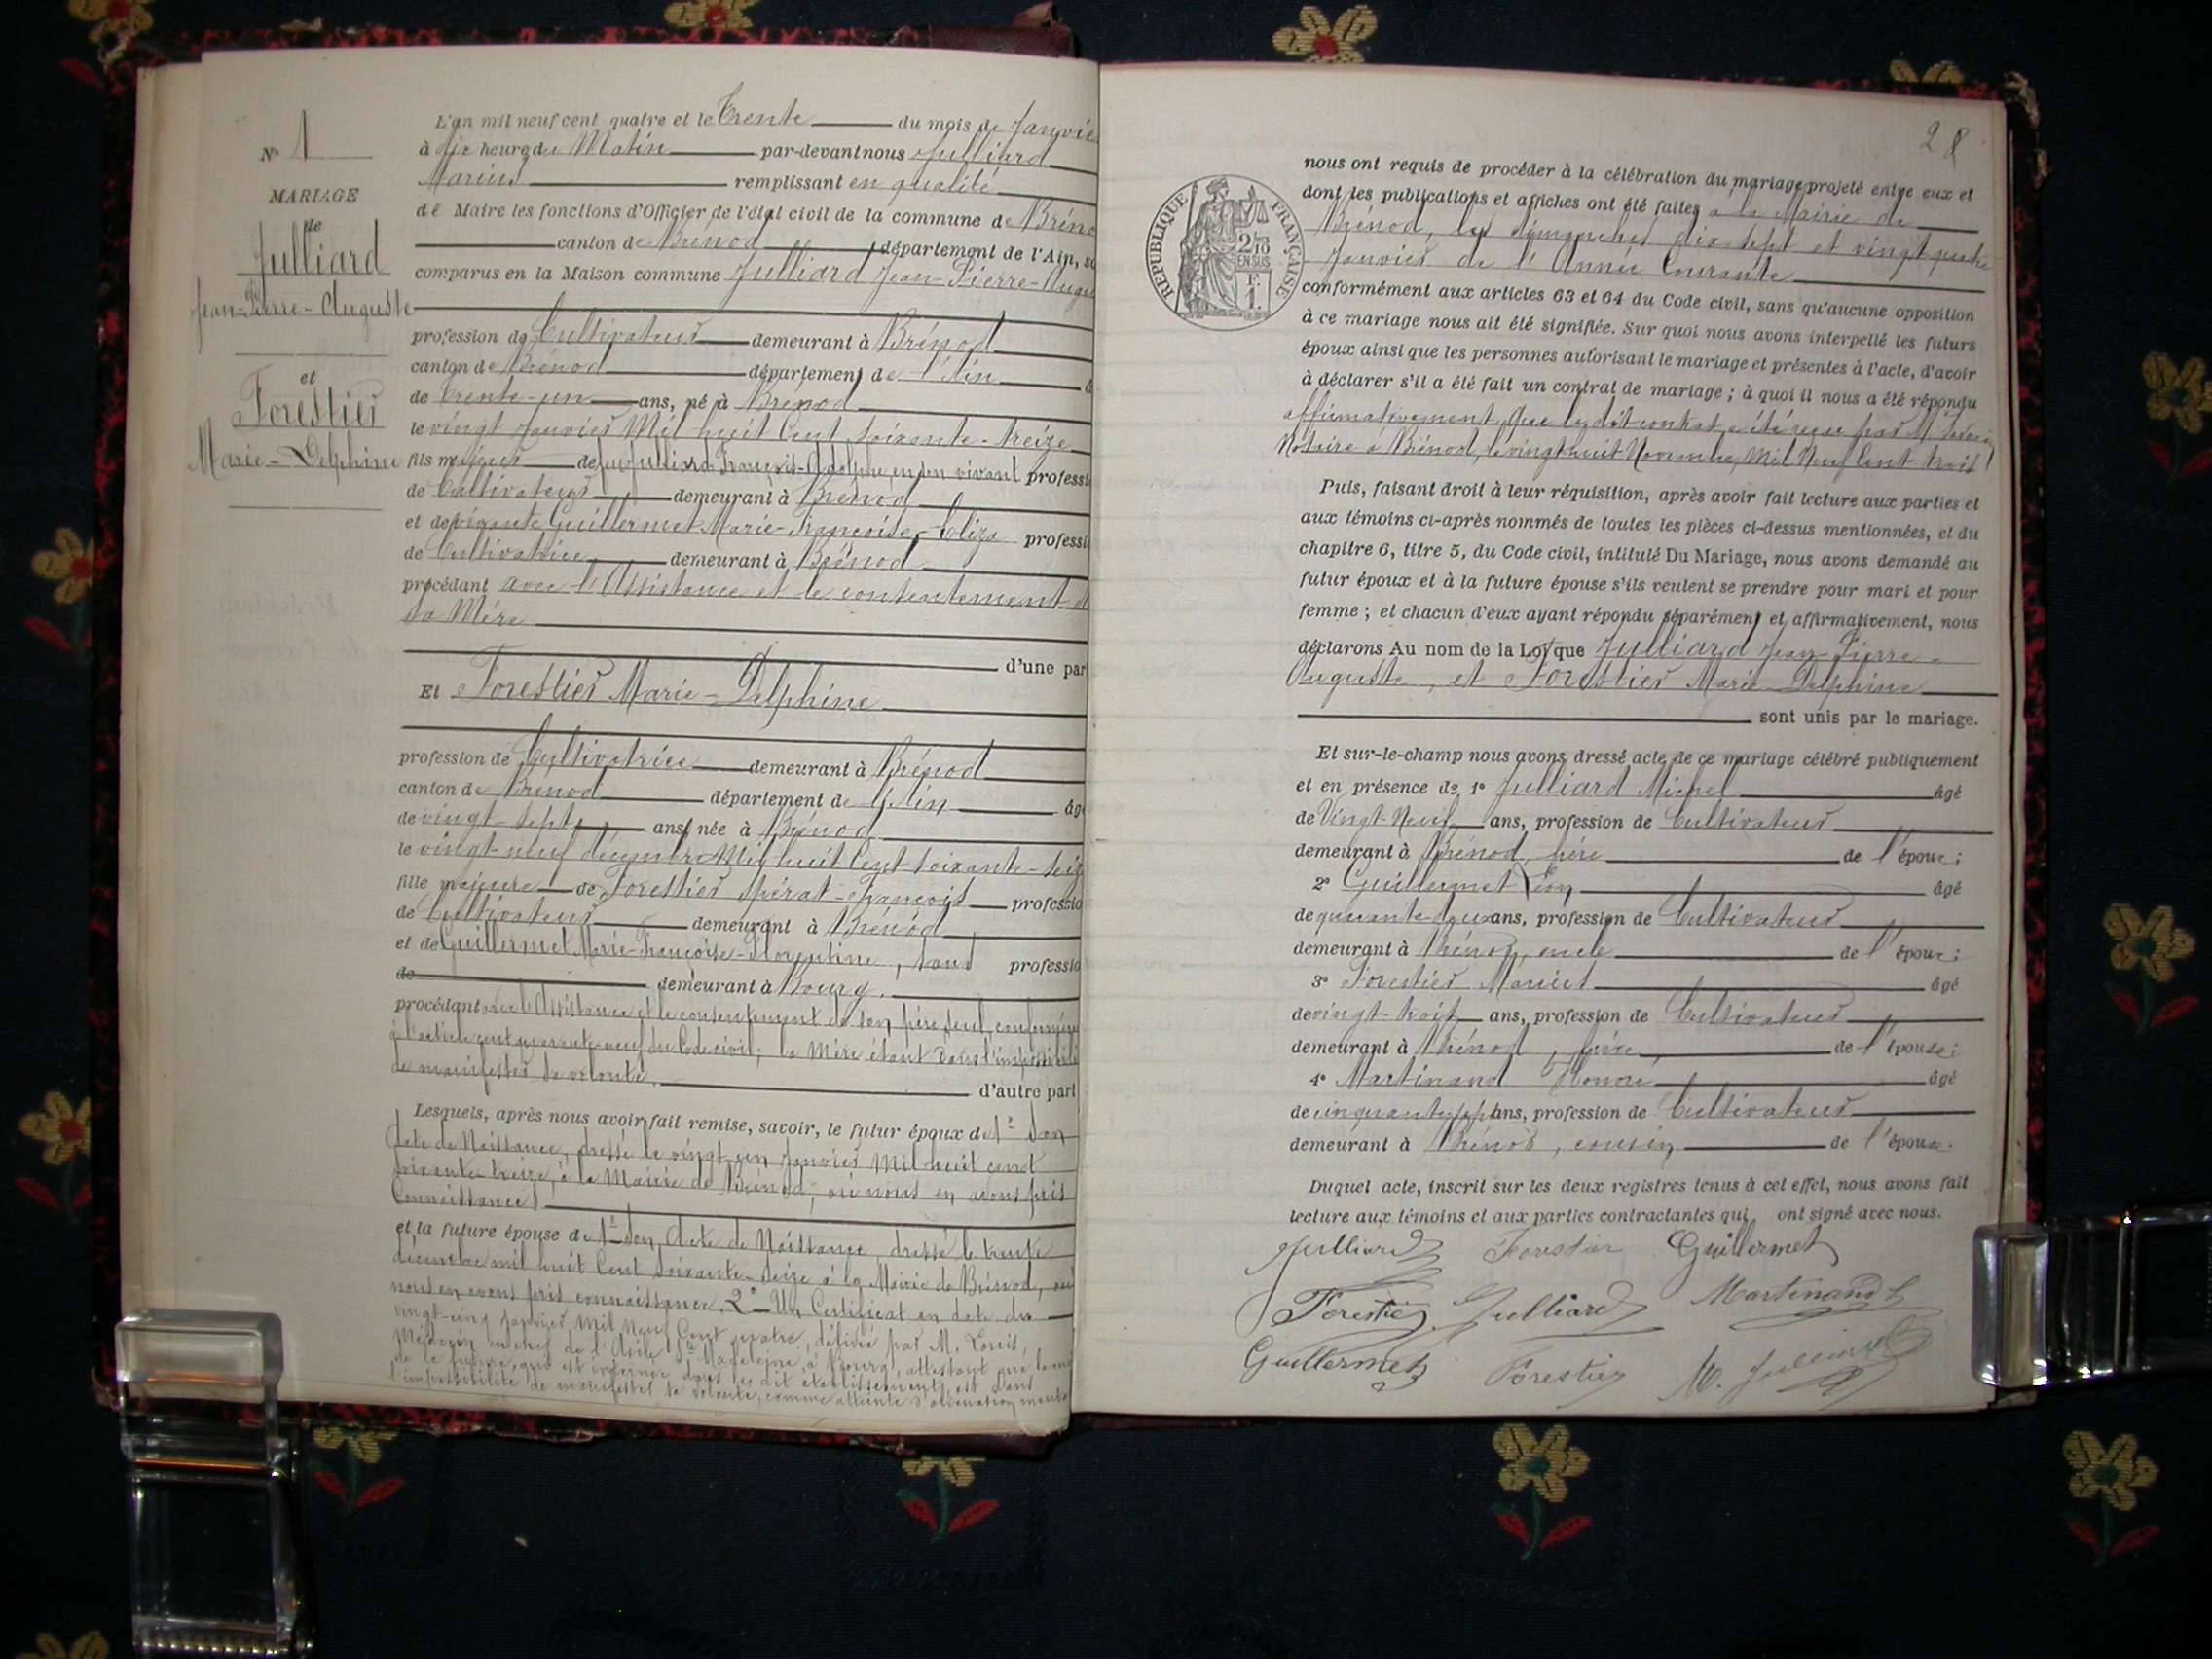 N° 1
MARIAGE
de
Julliard
Jean-Pierre-Auguste
et
Forestier
Marie-Delphine
L'an mil neuf cent quatre et le Trente du mois de Janvie
à dix heures du Matin par-devant nous Julliard
Marius remplissant en qualité
de Maire les fonctions d'Officier de l'état civil de la commune de Bréno
canton de Brénod département de l'Ain, so
comparus en la Maison commune Julliard Jean-Pierre-Augu
profession de Cultivateur demeurant à Brénod
canton de Brénod département de l'Ain â
de trente-un ans, né à Brénod
le vingt Janvier Mil huit Cent soixante-treize
fils majeur de feu Julliard François-Adolphe, en son vivant professi
de Cultivateur demeurant à Brénod
et de vivante Guillermet Marie-Françoise-Eliza professi
de Cultivatrice demeurant à Brénod
procédant avec l'Assistance et le consentement d
sa Mère
d'une par
Et Forestier Marie-Delphine
profession de Cultivatrice demeurant à Brénod
canton de Brénod département de l'Ain âgé
de vingt-sept ans, née à Brénod
le vingt-neuf décembre Mil huit Cent soixante-seiz
fille majeure de Forestier Spérat-François professio
de Cultivateur demeurant à Brénod
et de Guillermet Marie-Françoise-Florentine, sans professio
de demeurant à Bourg.
procédant avec l'Assistance et le consentement de son père seul, conformém
à l'article cent quarante-neuf du Code civil; la Mère étant dans l'impossibili
de manifester sa volonté.
d'autre part
Lesquels, après nous avoir fait remise, savoir, le futur époux de 1° Son
Acte de Naissance, dressé le vingt-un Janvier Mil huit cent
soixante-treize, à la Mairie de Brénod, où nous en avons pris
Connaissance
et la future épouse de 1° Son Acte de Naissance, dressé le trente
décembre mil huit Cent soixante-seize à la Mairie de Brénod, où
nous en avons pris connaissance. 2° Un Certificat en date du
vingt-cinq Janvier Mil Neuf Cent quatre, délivré par M. Louis,
Médecin en chef de l'Asile Ste Madeleine à Bourg, attestant que la mè
de la future, qui est internée dans le dit établissement, est dans
l'impossibilité de manifester sa volonté, comme atteinte d'aliénation mental
28
REPUBLIQUE FRANÇAISE
2/10
EN SUS
F.
1.
nous ont requis de procéder à la célébration du mariage projeté entre eux et
dont les publications et affiches ont été faites à la Mairie de
Brénod, les dimanches dix sept et vingt quatre
Janvier de l'Année Courante
conformément aux articles 63 et 64 du Code civil, sans qu'aucune opposition
à ce mariage nous ait été signifiée. Sur quoi nous avons interpellé les futurs
époux ainsi que les personnes autorisant le mariage et présentes à l'acte, d'avoir
à déclarer s'il a été fait un contrat de mariage; à quoi il nous a été répondu
affirmativement, que le dit contrat a été reçu par M
Notaire à Brénod, le vingt-huit Novembre, Mil Neuf Cent trois
Puis, faisant droit à leur réquisition, après avoir fait lecture aux parties et
aux témoins ci-après nommés de toutes les pièces ci-dessus mentionnées, et du
chapitre 6, titre 5, du Code civil, intitulé Du Mariage, nous avons demandé au
futur époux et à la future épouse s'ils veulent se prendre pour mari et pour
femme; et chacun d'eux ayant répondu séparément et affirmativement, nous
déclarons Au nom de la Loi que Julliard Jean-Pierre-
Auguste, et Forestier Marie-Delphine
sont unis par le mariage.
Et sur-le-champ nous avons dressé acte de ce mariage célébré publiquement
et en présence de 1° Julliard Michel âgé
de Vingt-Neuf ans, profession de Cultivateur
demeurant à Brénod, frère de l'époux;
2° Guillermet Léon âgé
de quarante-deux ans, profession de Cultivateur
demeurant à Brénod, oncle de l'époux;
3° Forestier Marius âgé
de vingt-trois ans, profession de Cultivateur
demeurant à Brénod, frère, de l'épouse;
4° Martinand Honoré âgé
de cinquante-sept ans, profession de Cultivateur
demeurant à Brénod, cousin de l'épouse.
Duquel acte, inscrit sur les deux registres tenus à cet effet, nous avons fait
lecture aux témoins et aux parties contractantes qui ont signé avec nous.
Julliard Forestier Guillermet
Forestier Julliard Martinand
Guillermet Forestier M. Julliard